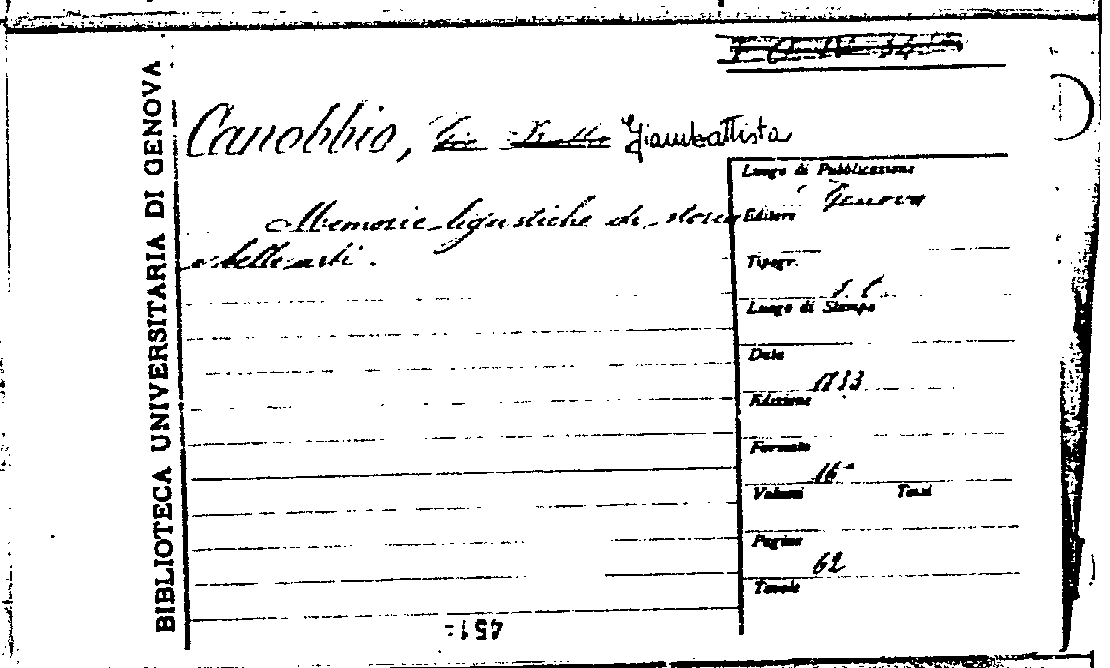 BIBLIOTECA UNIVERSITARIA DI GENOVA
Canobbio, Gio Giambattista
Memorie ligustiche di storia
e belle arti.
Luogo di Pubblicazione
Genova
Editore
Tipogr.
Luogo di Stampa
Data
Edizione
Formato
16°
Volumi Tomi
Pagine
62
Tavole